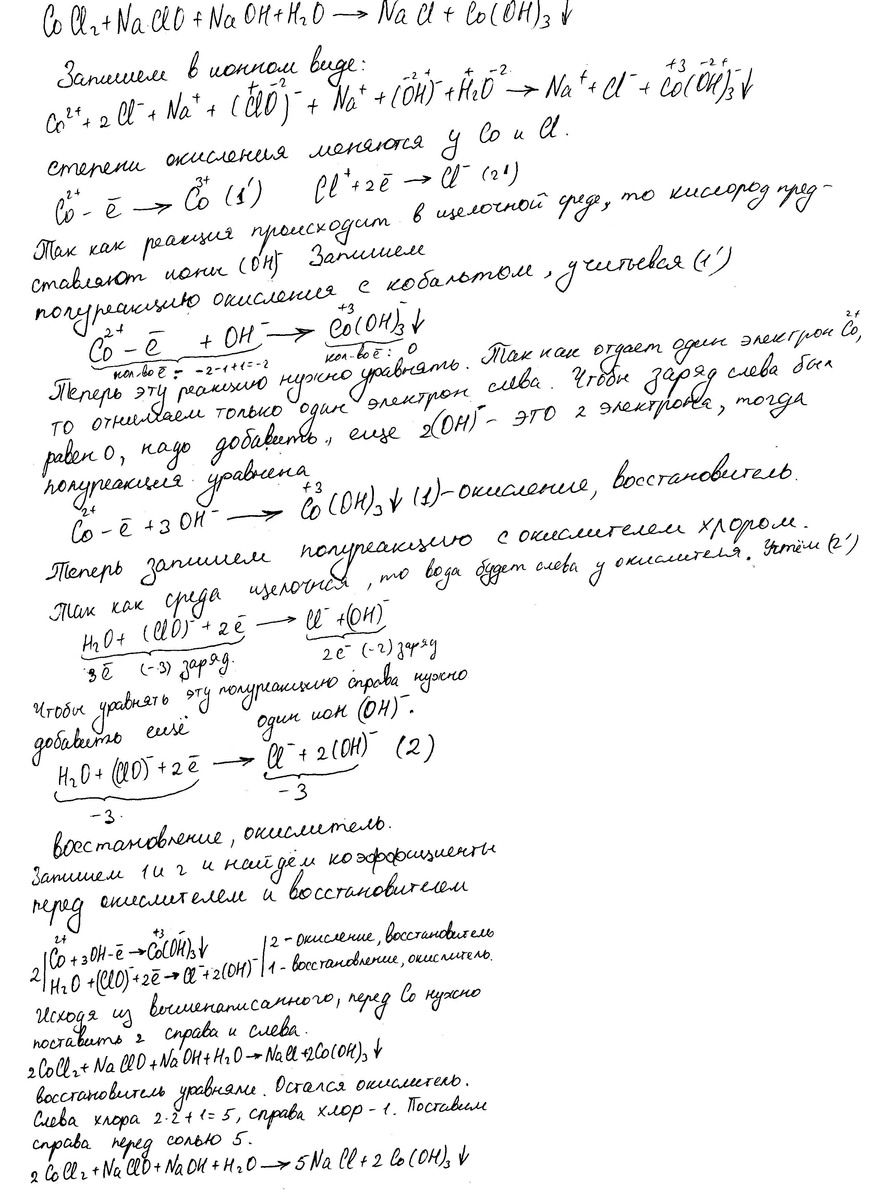 CoCl₂ + NaClO + NaOH + H₂O → NaCl + Co(OH)₃↓
Запишем в ионном виде:
Co²⁺ + 2Cl⁻ + Na⁺ + (Cl⁺O⁻²)⁻ + Na⁺ + (O⁻²H⁺)⁻ + H₂⁺O⁻² → Na⁺ + Cl⁻ + Co⁺³(O⁻²H⁺)₃⁻↓
степени окисления меняются у Co и Cl.
Co²⁺ - ē → Co³⁺ (1') Cl⁺ + 2ē → Cl⁻ (2')
Так как реакция происходит в щелочной среде, то кислород пред-
ставляют ионы (OH)⁻ Запишем
полуреакцию окисления с кобальтом, учитывая (1')
Co²⁺ - ē + OH⁻ → Co⁺³(OH)₃⁻↓
кол-во ē = -2-1+1=-2 кол-во ē: 0
Теперь эту реакцию нужно уравнять. Так как отдает один электрон Co²⁺,
то отнимаем только один электрон слева. Чтобы заряд слева был
равен 0, надо добавить, еще 2(OH)⁻ - это 2 электрона, тогда
полуреакция уравнена
Co²⁺ - ē + 3OH⁻ → Co⁺³(OH)₃↓ (1) - окисление, восстановитель.
Теперь запишем полуреакцию с окислителем хлором.
Так как среда щелочная, то вода будет слева у окислителя. Учтём (2')
H₂O + (ClO)⁻ + 2ē → Cl⁻ + (OH)⁻
3ē (-3) заряд. 2e⁻ (-2) заряд
Чтобы уравнять эту полуреакцию справа нужно
добавить ещё один ион (OH)⁻.
H₂O + (ClO)⁻ + 2ē → Cl⁻ + 2(OH)⁻ (2)
-3. -3
восстановление, окислитель.
Запишем 1 и 2 и найдём коэффициенты
перед окислителем и восстановителем
Co²⁺ + 3OH⁻ - ē → Co⁺³(OH)₃⁻↓ | 2 - окисление, восстановитель
2| H₂O + (ClO)⁻ + 2ē → Cl⁻ + 2(OH)⁻ | 1 - восстановление, окислитель.
Исходя из вышенаписанного, перед Co нужно
поставить 2 справа и слева.
2CoCl₂ + NaClO + NaOH + H₂O → NaCl + 2Co(OH)₃↓
восстановитель уравняли. Остался окислитель.
Слева хлора 2·2+1=5, справа хлор - 1. Поставим
справа перед солью 5.
2CoCl₂ + NaClO + NaOH + H₂O → 5NaCl + 2Co(OH)₃↓